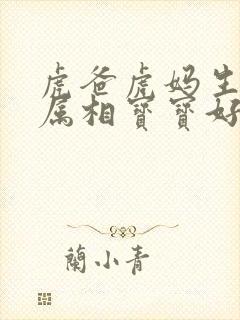 虎爸虎妈生
属相寶寶好
蘭小青